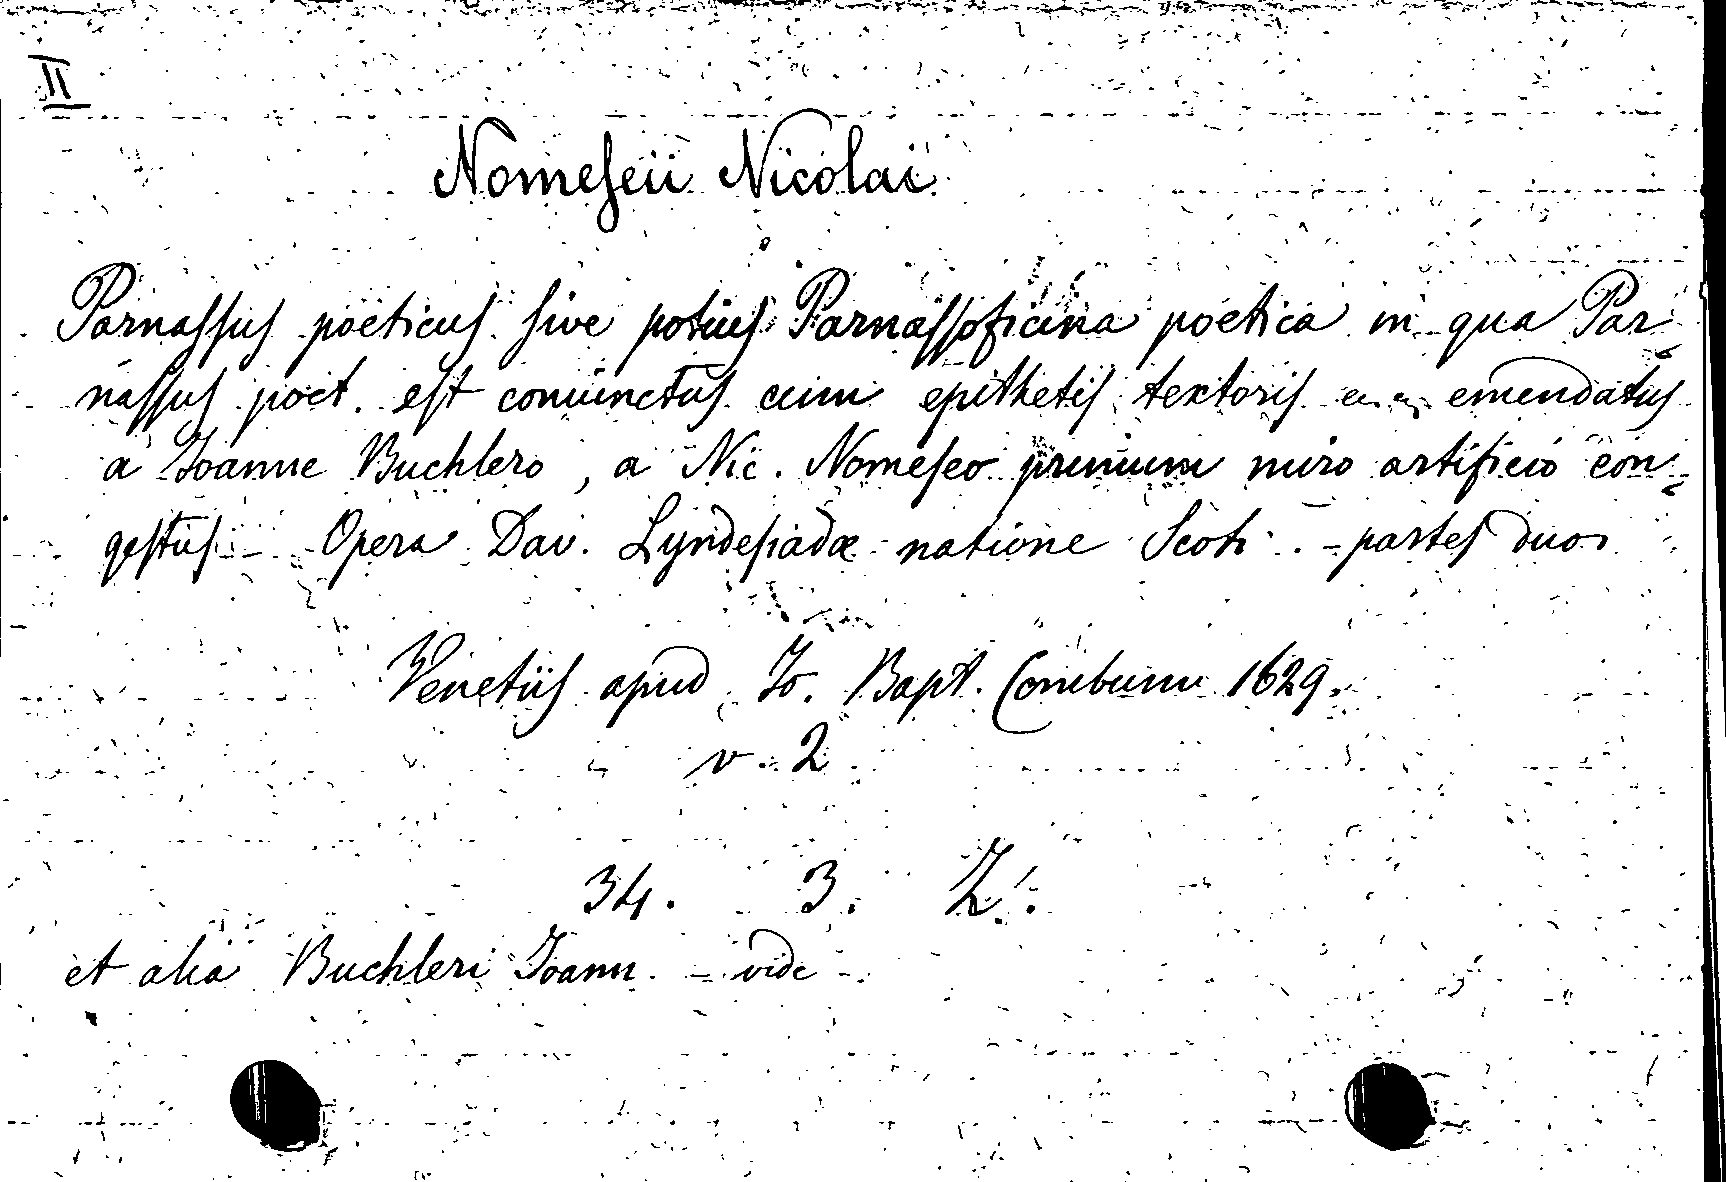 II
Nomeseii Nicolai
Parnassus poeticus sive potius Parnassoficina poetica in qua Par-
nassus poet. est coniunctus cum epithetis textoris emendatus
a Joanne Buchlero, a Nic. Nomeseo primum miro artificio con-
gestus - Opera Dav. Lyndesiadæ natione Scoti. - partes duo
Venetiis apud Jo. Bapt. Combum 1629.
v. 2
34. 3. Z.
et alia Buchleri Joann. - vide -